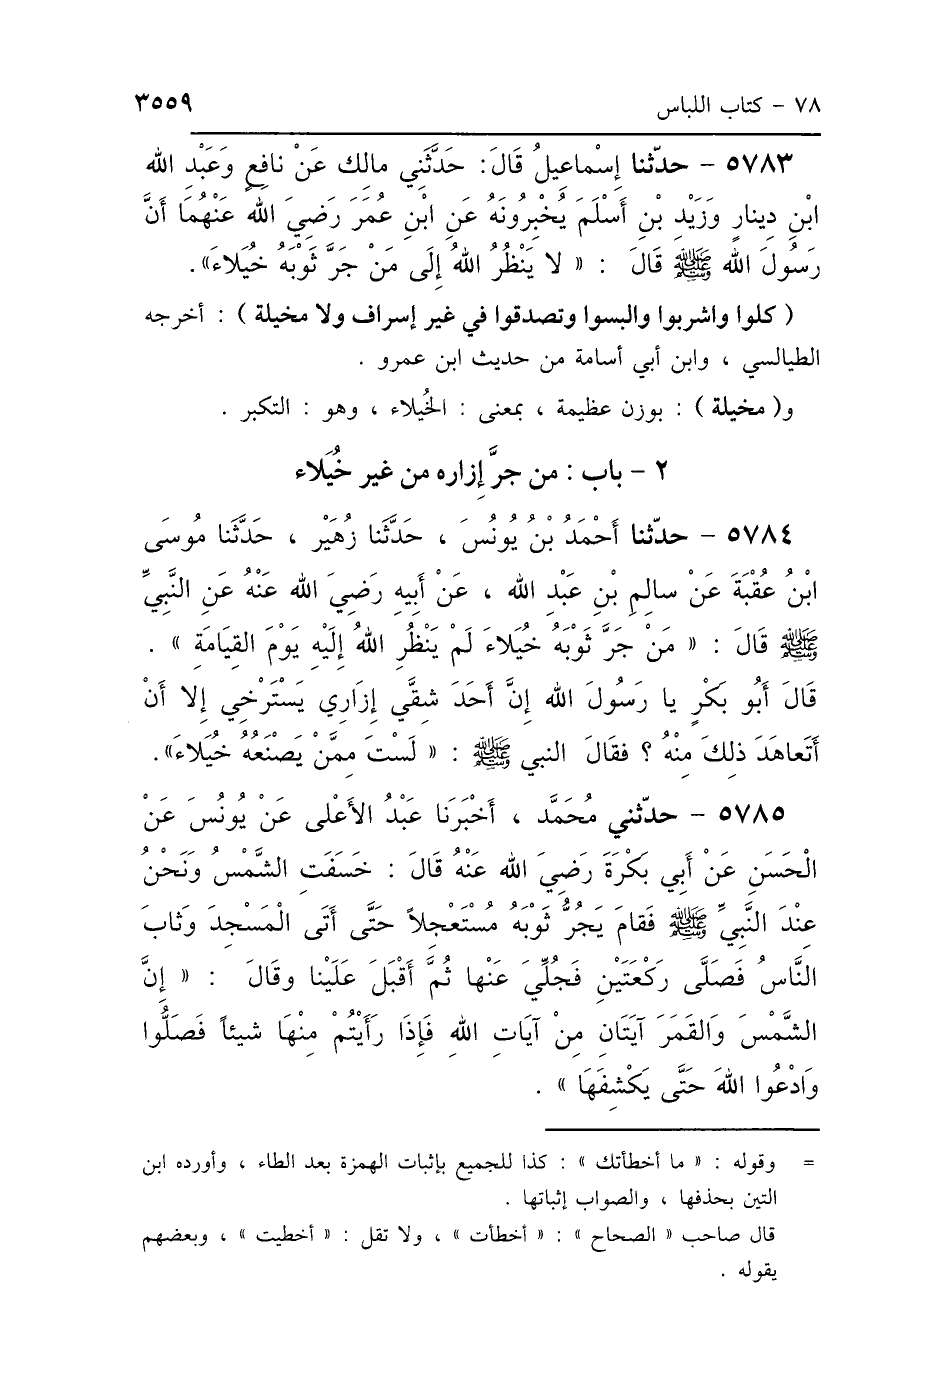 ٧٨ - كتاب اللباس ٣٥٥٩
٥٧٨٣ - حدّثنا إِسْماعِيلُ قَالَ: حَدَّثَنِي مالك عَنْ نافِعٍ وَعَبْدِ الله
ابْنِ دِينارٍ وَزَيْدِ بْنِ أَسْلَمَ يُخْبِرُونَهُ عَنِ ابْنِ عُمَرَ رَضِيَ اللهُ عَنْهُمَا أَنَّ
رَسُولَ الله ﷺ قَالَ : « لا يَنْظُرُ اللهُ إِلَى مَنْ جَرَّ ثَوْبَهُ خُيَلاءَ».
( كلوا واشربوا والبسوا وتصدقوا في غير إسراف ولا مخيلة ) : أخرجه
الطيالسي ، وابن أبي أسامة من حديث ابن عمرو .
و( مخيلة ) : بوزن عظيمة ، بمعنى : الخُيلاء ، وهو : التكبر .
٢ - باب : من جرَّ إزاره من غير خُيَلاء
٥٧٨٤ - حدّثنا أَحْمَدُ بْنُ يُونُسَ ، حَدَّثَنا زُهَيْر ، حَدَّثَنا مُوسَى
ابْنُ عُقْبَةَ عَنْ سالِمِ بْنِ عَبْدِ الله ، عَنْ أَبِيهِ رَضِيَ الله عَنْهُ عَنِ النَّبِيِّ
ﷺ قَالَ : « مَنْ جَرَّ ثَوْبَهُ خُيَلاءَ لَمْ يَنْظُرِ اللهُ إِلَيْهِ يَوْمَ القِيَامَةِ » .
قَالَ أَبُو بَكْرٍ يا رَسُولَ الله إِنَّ أَحَدَ شقَّي إِزَارِي يَسْتَرْخِي إلا أَنْ
أَتَعاهَدَ ذلِكَ مِنْهُ ؟ فقَالَ النبي ﷺ : « لَسْتَ ممَّنْ يَصْنَعُهُ خُيَلاءَ».
٥٧٨٥ - حدّثني مُحَمَّد ، أَخْبَرَنا عَبْدُ الأَعْلى عَنْ يُونُسَ عَنْ
الْحَسَنِ عَنْ أَبِي بَكْرَةَ رَضِيَ الله عَنْهُ قَالَ : خَسَفَتِ الشَّمْسُ وَنَحْنُ
عِنْدَ النَّبِيِّ ﷺ فَقامَ يَجُرُّ ثَوْبَهُ مُسْتَعْجلاً حَتَّى أَتَى الْمَسْجِدَ وَثابَ
النَّاسُ فَصَلَّى رَكْعَتَيْنِ فَجُلِّيَ عَنْها ثُمَّ أَقْبَلَ عَلَيْنا وقَالَ : « إِنَّ
الشَّمْسَ وَالقَمَرَ آيَتَانِ مِنْ آيَاتِ اللهِ فَإِذَا رَأَيْتُمْ مِنْهَا شيئاً فَصَلُّوا
وَادْعُوا اللهَ حَتَّى يَكْشِفَهَا » .
= وقوله : « ما أخطأتك » : كذا للجميع بإثبات الهمزة بعد الطاء ، وأورده ابن
التين بحذفها ، والصواب إثباتها .
قال صاحب « الصحاح » : « أخطأت » ، ولا تقل : « أخطيت » ، وبعضهم
يقوله .